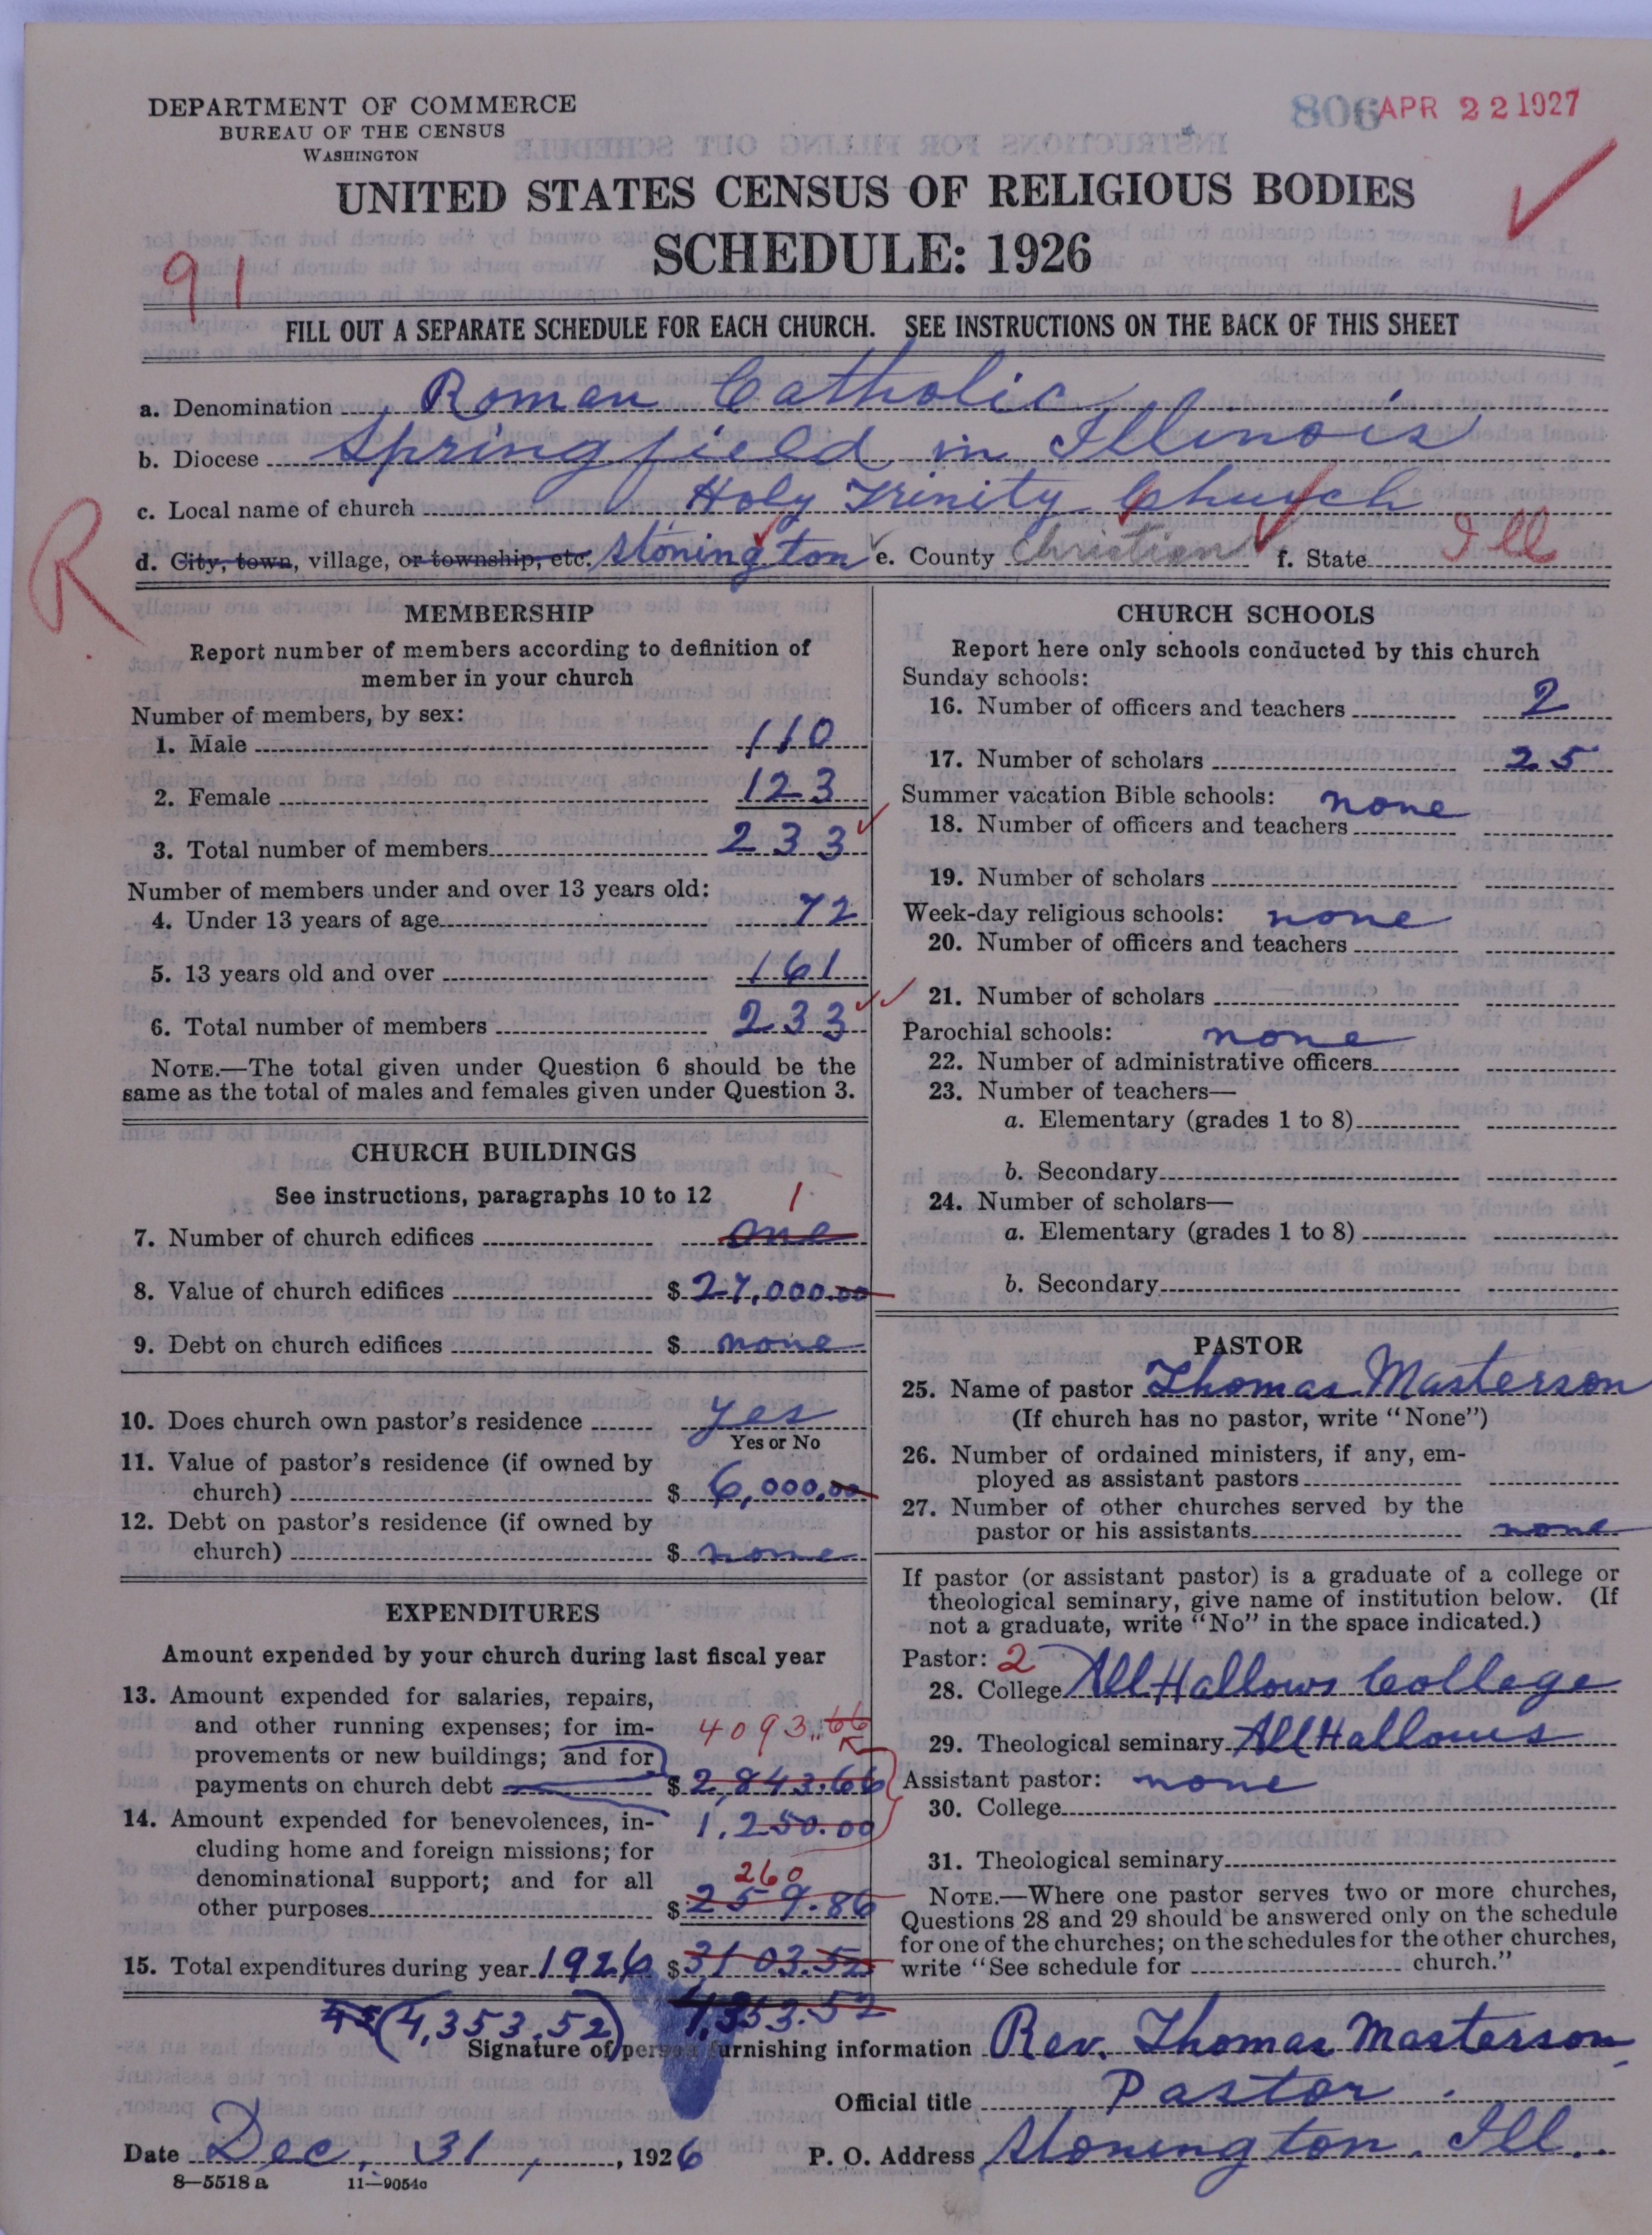 DEPARTMENT OF COMMERCE
BUREAU OF THE CENSUS
WASHINGTON
806 APR 22 1927
UNITED STATES CENSUS OF RELIGIOUS BODIES
SCHEDULE: 1926
91
FILL OUT A SEPARATE SCHEDULE FOR EACH CHURCH. SEE INSTRUCTIONS ON THE BACK OF THIS SHEET
a. Denomination Roman Catholic
b. Diocese Springfield in Illinois
c. Local name of church Holy Trinity Church
R
d. City, town, village, or township, etc. Stonington e. County Christian f. State Ill
MEMBERSHIP
Report number of members according to definition of
member in your church
Number of members, by sex:
1. Male 110
2. Female 123
3. Total number of members 233
Number of members under and over 13 years old:
4. Under 13 years of age 72
5. 13 years old and over 161
6. Total number of members 233
NOTE.—The total given under Question 6 should be the
same as the total of males and females given under Question 3.
CHURCH BUILDINGS
See instructions, paragraphs 10 to 12
1
7. Number of church edifices one
8. Value of church edifices $ 27,000.00
9. Debt on church edifices $ none
10. Does church own pastor's residence yes
Yes or No
11. Value of pastor's residence (if owned by
church) $ 6,000.00
12. Debt on pastor's residence (if owned by
church) $ none
EXPENDITURES
Amount expended by your church during last fiscal year
13. Amount expended for salaries, repairs,
and other running expenses; for im- 4093.66
provements or new buildings; and for
payments on church debt $ 2,843.66
14. Amount expended for benevolences, in- 1,250.00
cluding home and foreign missions; for
denominational support; and for all 260
other purposes $ 259.86
15. Total expenditures during year 1926 $ 3103.52
(4,353.52) 4,353.52
CHURCH SCHOOLS
Report here only schools conducted by this church
Sunday schools:
16. Number of officers and teachers 2
17. Number of scholars 25
Summer vacation Bible schools: none
18. Number of officers and teachers
19. Number of scholars
Week-day religious schools: none
20. Number of officers and teachers
21. Number of scholars
Parochial schools: none
22. Number of administrative officers
23. Number of teachers—
a. Elementary (grades 1 to 8)
b. Secondary
24. Number of scholars—
a. Elementary (grades 1 to 8)
b. Secondary
PASTOR
25. Name of pastor Thomas Masterson
(If church has no pastor, write "None")
26. Number of ordained ministers, if any, em-
ployed as assistant pastors
27. Number of other churches served by the
pastor or his assistants none
If pastor (or assistant pastor) is a graduate of a college or
theological seminary, give name of institution below. (If
not a graduate, write "No" in the space indicated.)
Pastor: 2
28. College All Hallows College
29. Theological seminary All Hallows
Assistant pastor: none
30. College
31. Theological seminary
NOTE.—Where one pastor serves two or more churches,
Questions 28 and 29 should be answered only on the schedule
for one of the churches; on the schedules for the other churches,
write "See schedule for church."
Signature of person furnishing information Rev. Thomas Masterson
Official title Pastor.
Date Dec. 31, 1926 P. O. Address Stonington. Ill.
8—5518 a 11—9054a